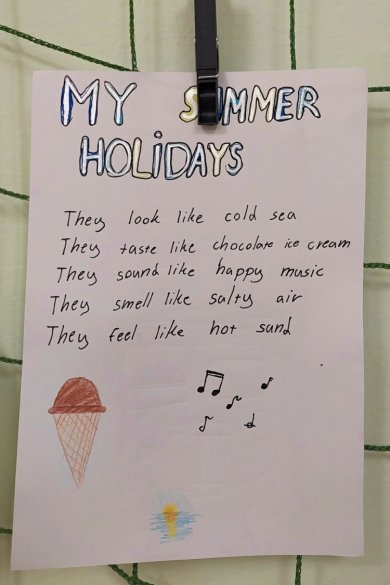 MY SUMMER
HOLiDAYS
They look like cold sea
They taste like chocolate ice cream
They sound like happy music
They smell like salty air
They feel like hot sand